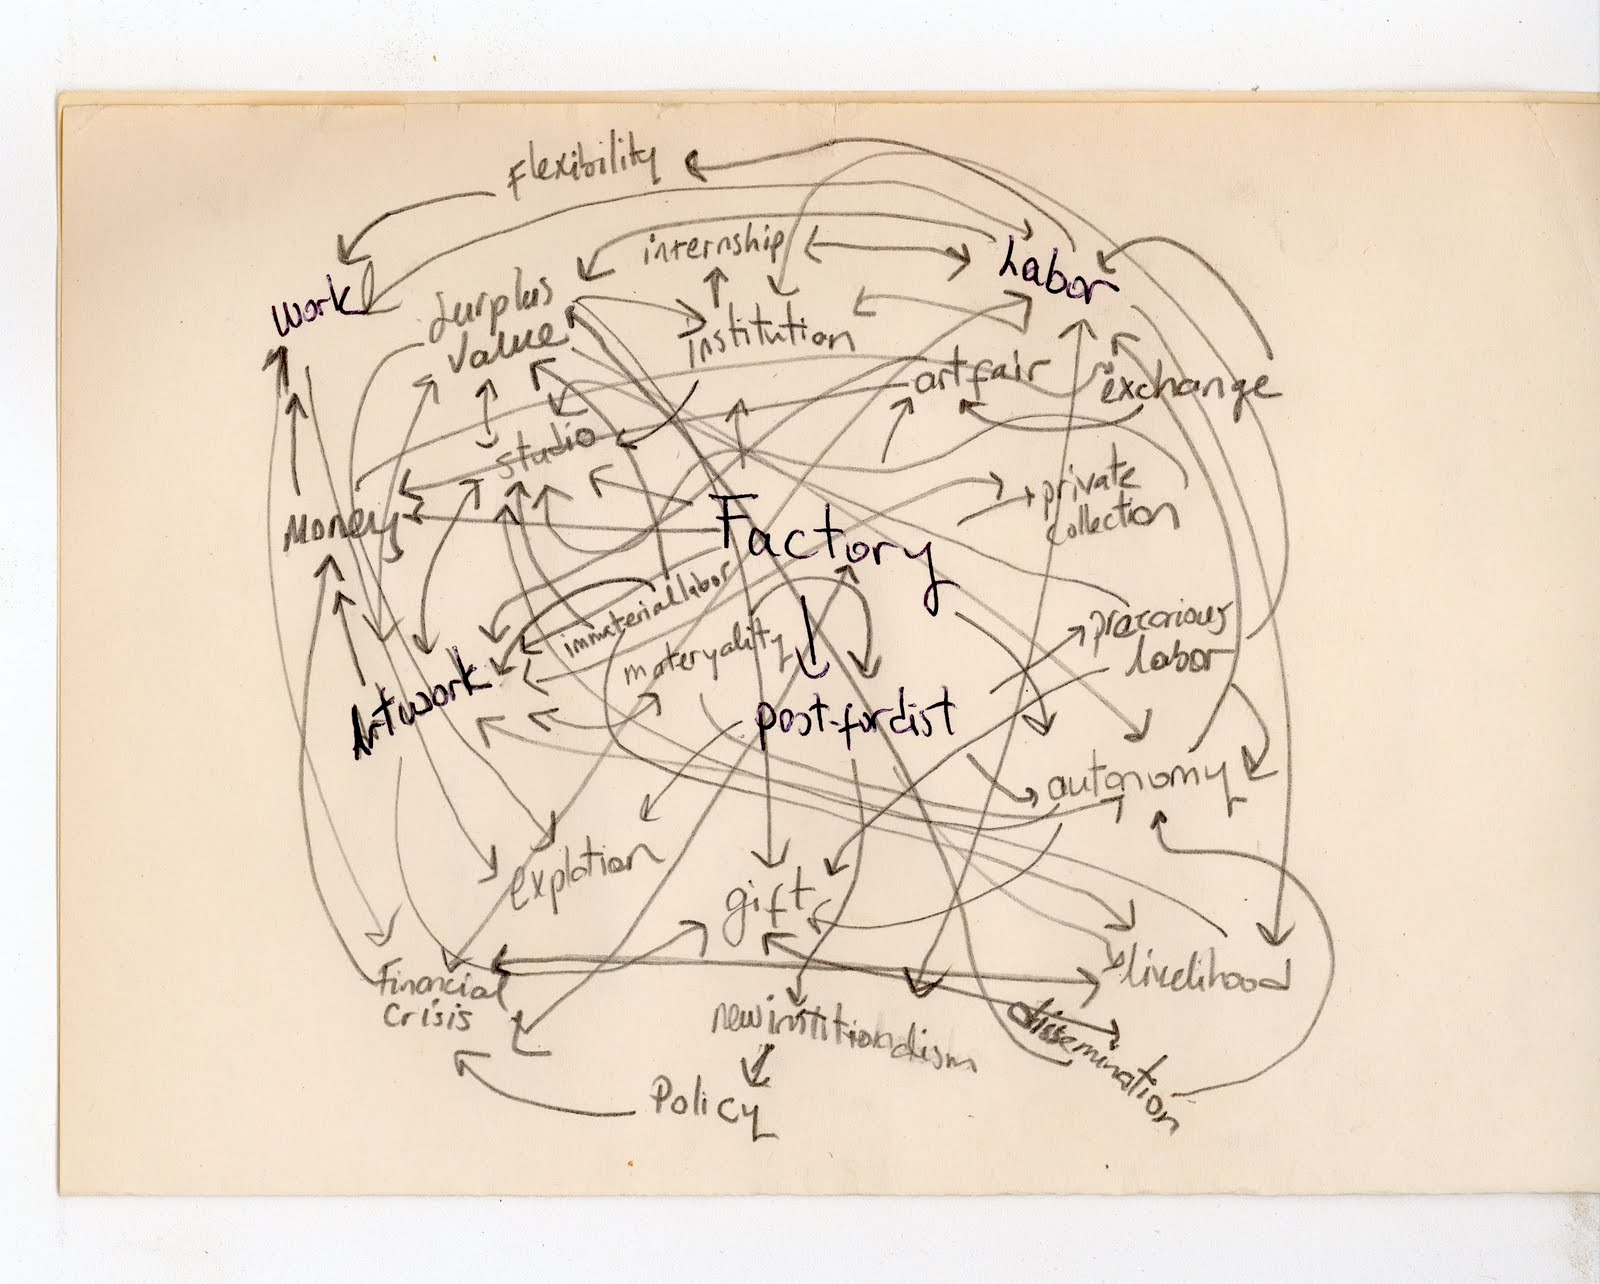 Flexibility
internship
Labor
work
Surplus
Value
institution
artfair
exchange
studio
Money
private
collection
Factory
immaterial labor
materyality
precarious
labor
Artwork
post-fordist
autonomy
explotion
gift
livelihood
Financial
crisis
dissemination
Policy